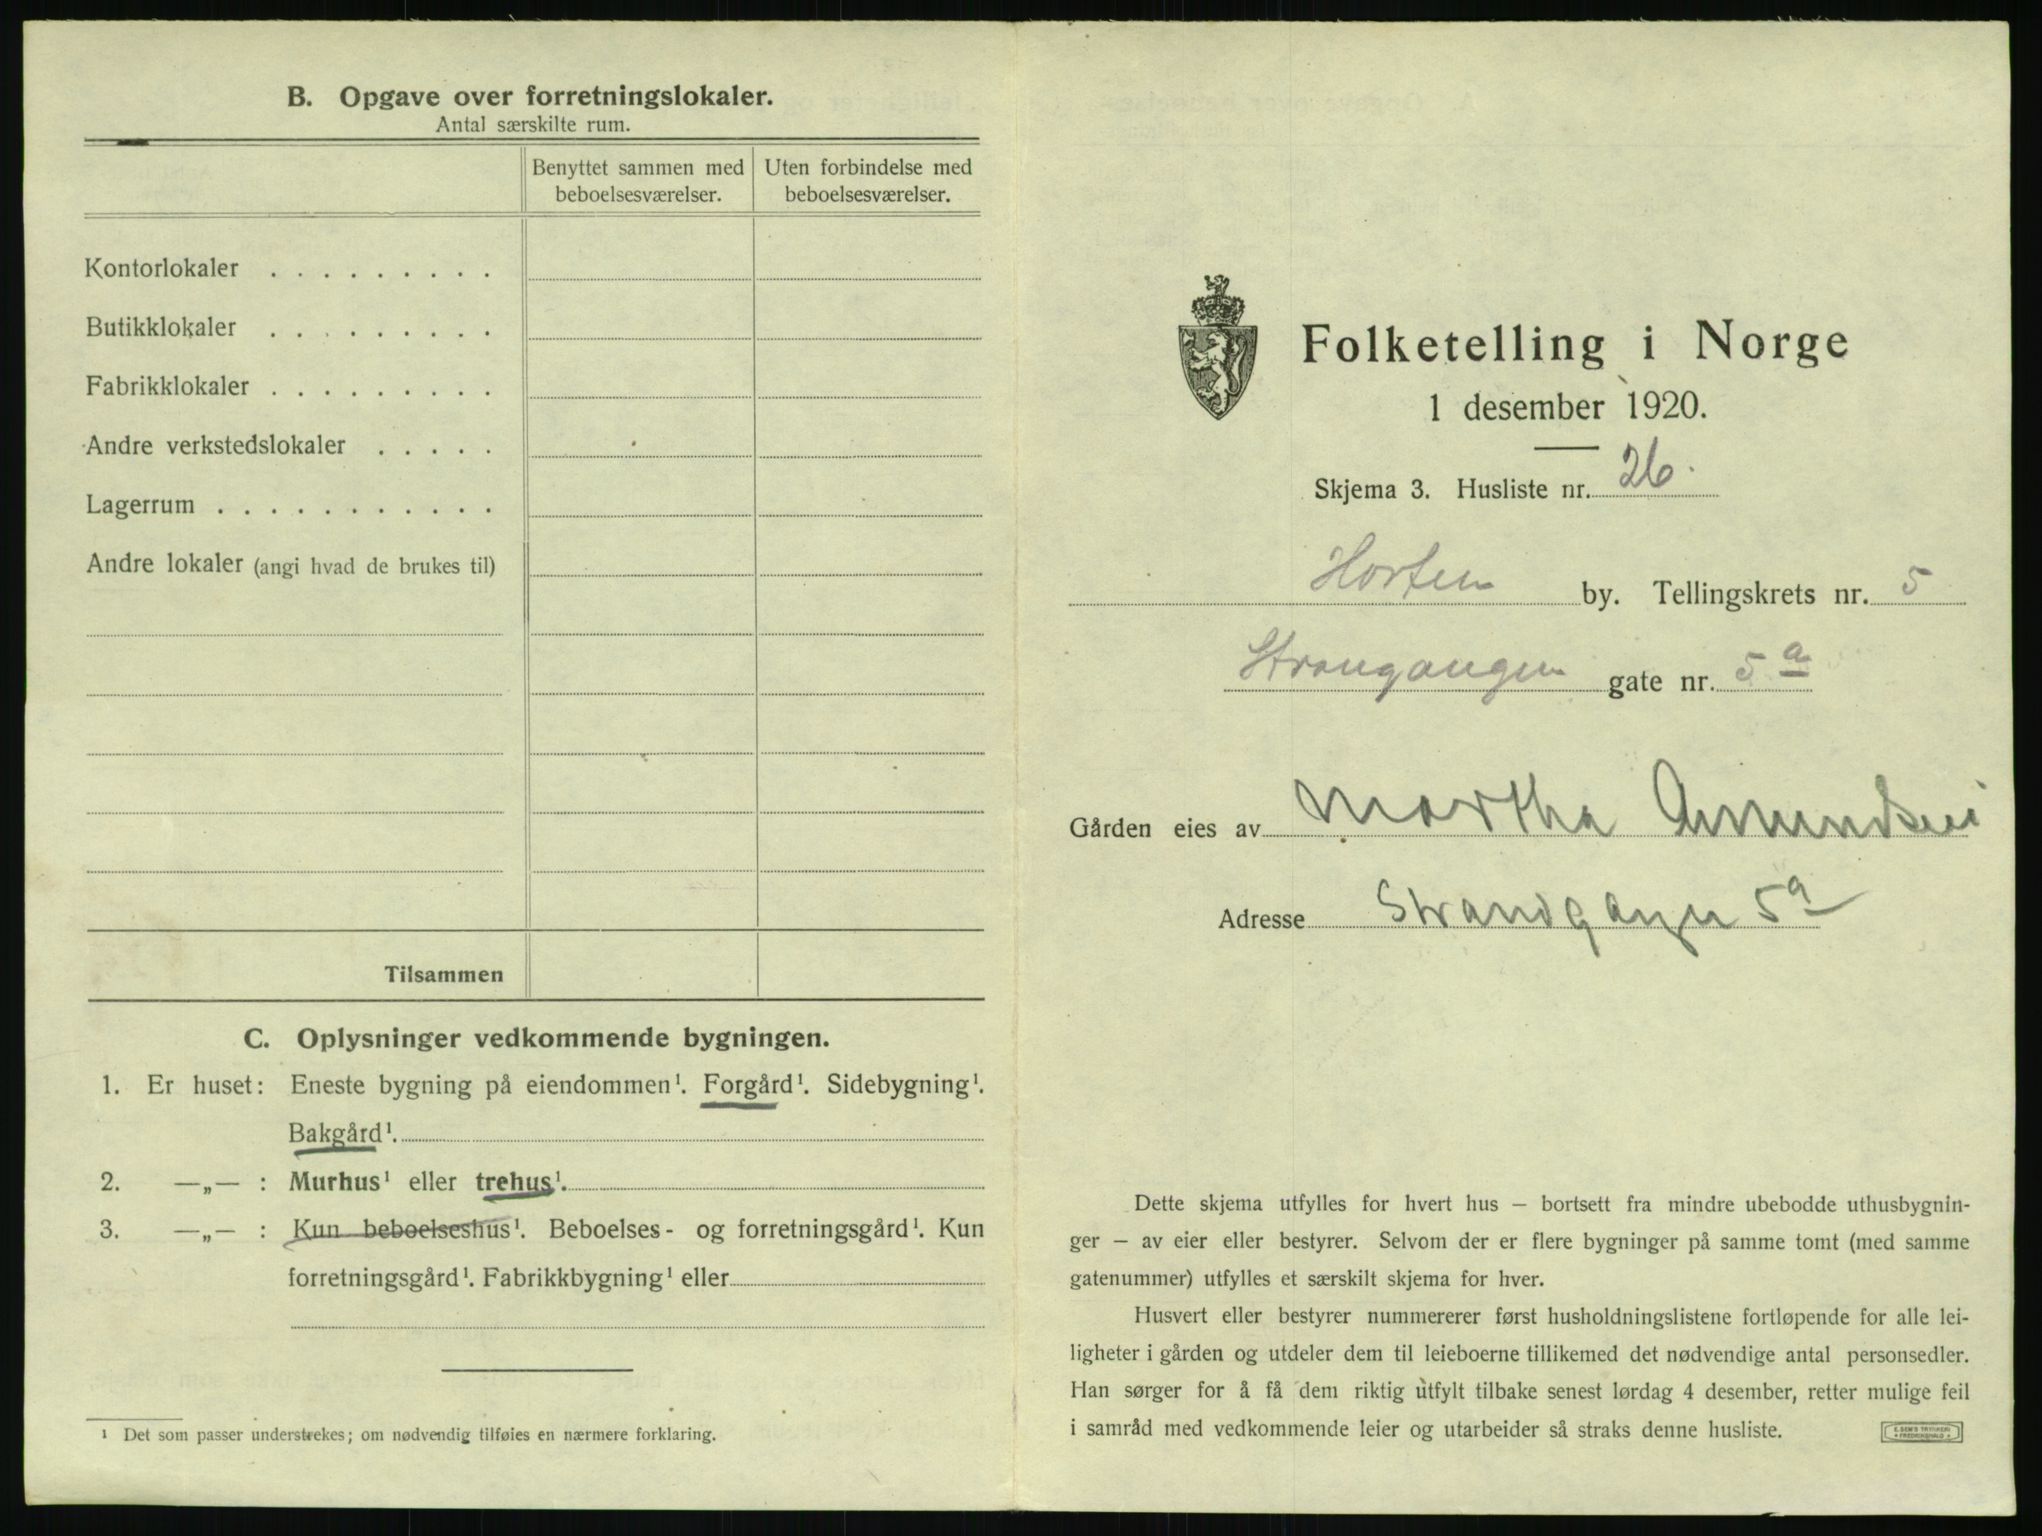 B. Opgave over forretningslokaler.
Antal særskilte rum.
Benyttet sammen med beboelsesværelser.
Uten forbindelse med beboelsesværelser.
Kontorlokaler . . . . . . . . .
Butikklokaler . . . . . . . . .
Fabrikklokaler . . . . . . . . .
Andre verkstedslokaler . . . . .
Lagerrum . . . . . . . . . . .
Andre lokaler (angi hvad de brukes til)
Tilsammen
C. Oplysninger vedkommende bygningen.
1. Er huset: Eneste bygning på eiendommen¹. Forgård¹. Sidebygning¹.
Bakgård¹.
2. —„— : Murhus¹ eller trehus¹.
3. —„— : Kun beboelseshus¹. Beboelses- og forretningsgård¹. Kun
forretningsgård¹. Fabrikkbygning¹ eller
¹ Det som passer understrekes; om nødvendig tilføies en nærmere forklaring.
Folketelling i Norge
1 desember 1920.
Skjema 3. Husliste nr. 26.
Horten by. Tellingskrets nr. 5
Strangangen gate nr. 5 a
Gården eies av Martha Amundsen
Adresse Strandgangen 5 a
Dette skjema utfylles for hvert hus – bortsett fra mindre ubebodde uthusbygnin-
ger – av eier eller bestyrer. Selvom der er flere bygninger på samme tomt (med samme
gatenummer) utfylles et særskilt skjema for hver.
Husvert eller bestyrer nummererer først husholdningslistene fortløpende for alle lei-
ligheter i gården og utdeler dem til leieboerne tillikemed det nødvendige antal personsedler.
Han sørger for å få dem riktig utfylt tilbake senest lørdag 4 desember, retter mulige feil
i samråd med vedkommende leier og utarbeider så straks denne husliste.
E. SEM'S TRYKKERI
FREDRIKSHALD